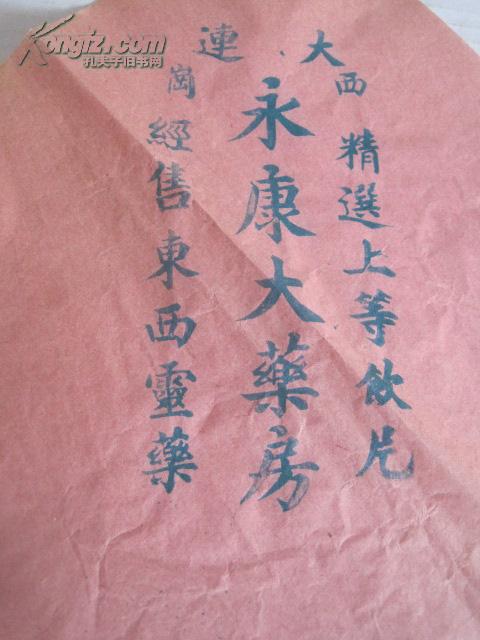 大連
西崗
精選上等飲片
永康大藥房
經售東西靈藥
Kongfz.com
孔夫子旧书网